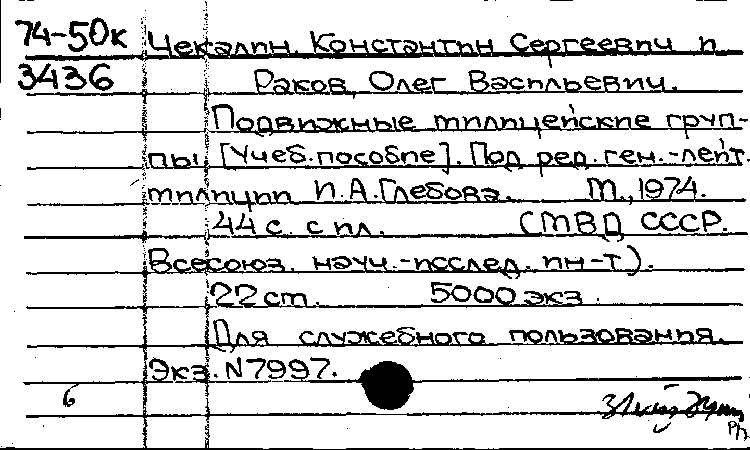 74-50к Чекалин, Константин Сергеевич и
3436 Раков, Олег Васильевич.
Подвижные милицейские груп-
пы [Учеб. пособие]. Под ред. ген.-лейт.
милиции И.А. Глебова. М., 1974.
44 с. с ил. (МВД СССР.
Всесоюз. науч.-исслед. ин-т).
22 см. 5000 экз.
Для служебного пользования.
Экз. N 7997.
6